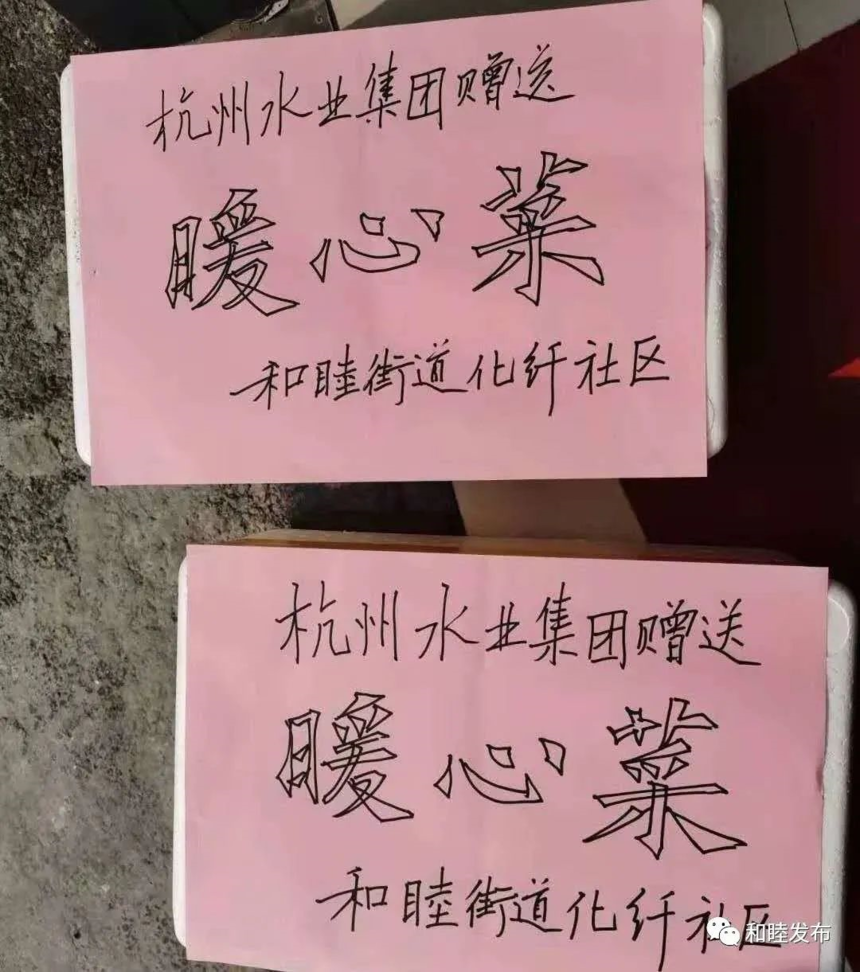 杭州水业集团赠送
暖心菜
和睦街道化纤社区
杭州水业集团赠送
暖心菜
和睦街道化纤社区
和睦发布